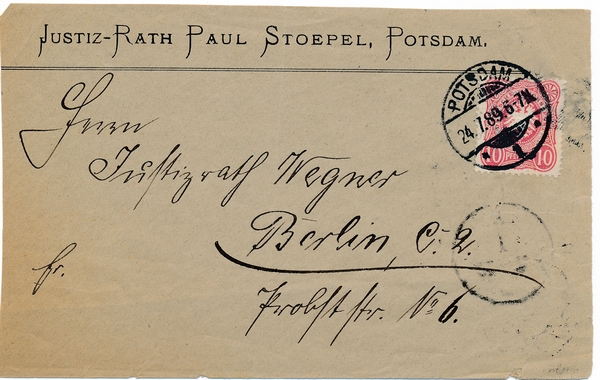 JUSTIZ-RATH PAUL STOEPEL, POTSDAM.
POTSDAM
24.7.89.6-7N.
1
10 10
Herrn
Justizrath Wegner
Berlin, C. 2.
fr.
Probststr. No 6.